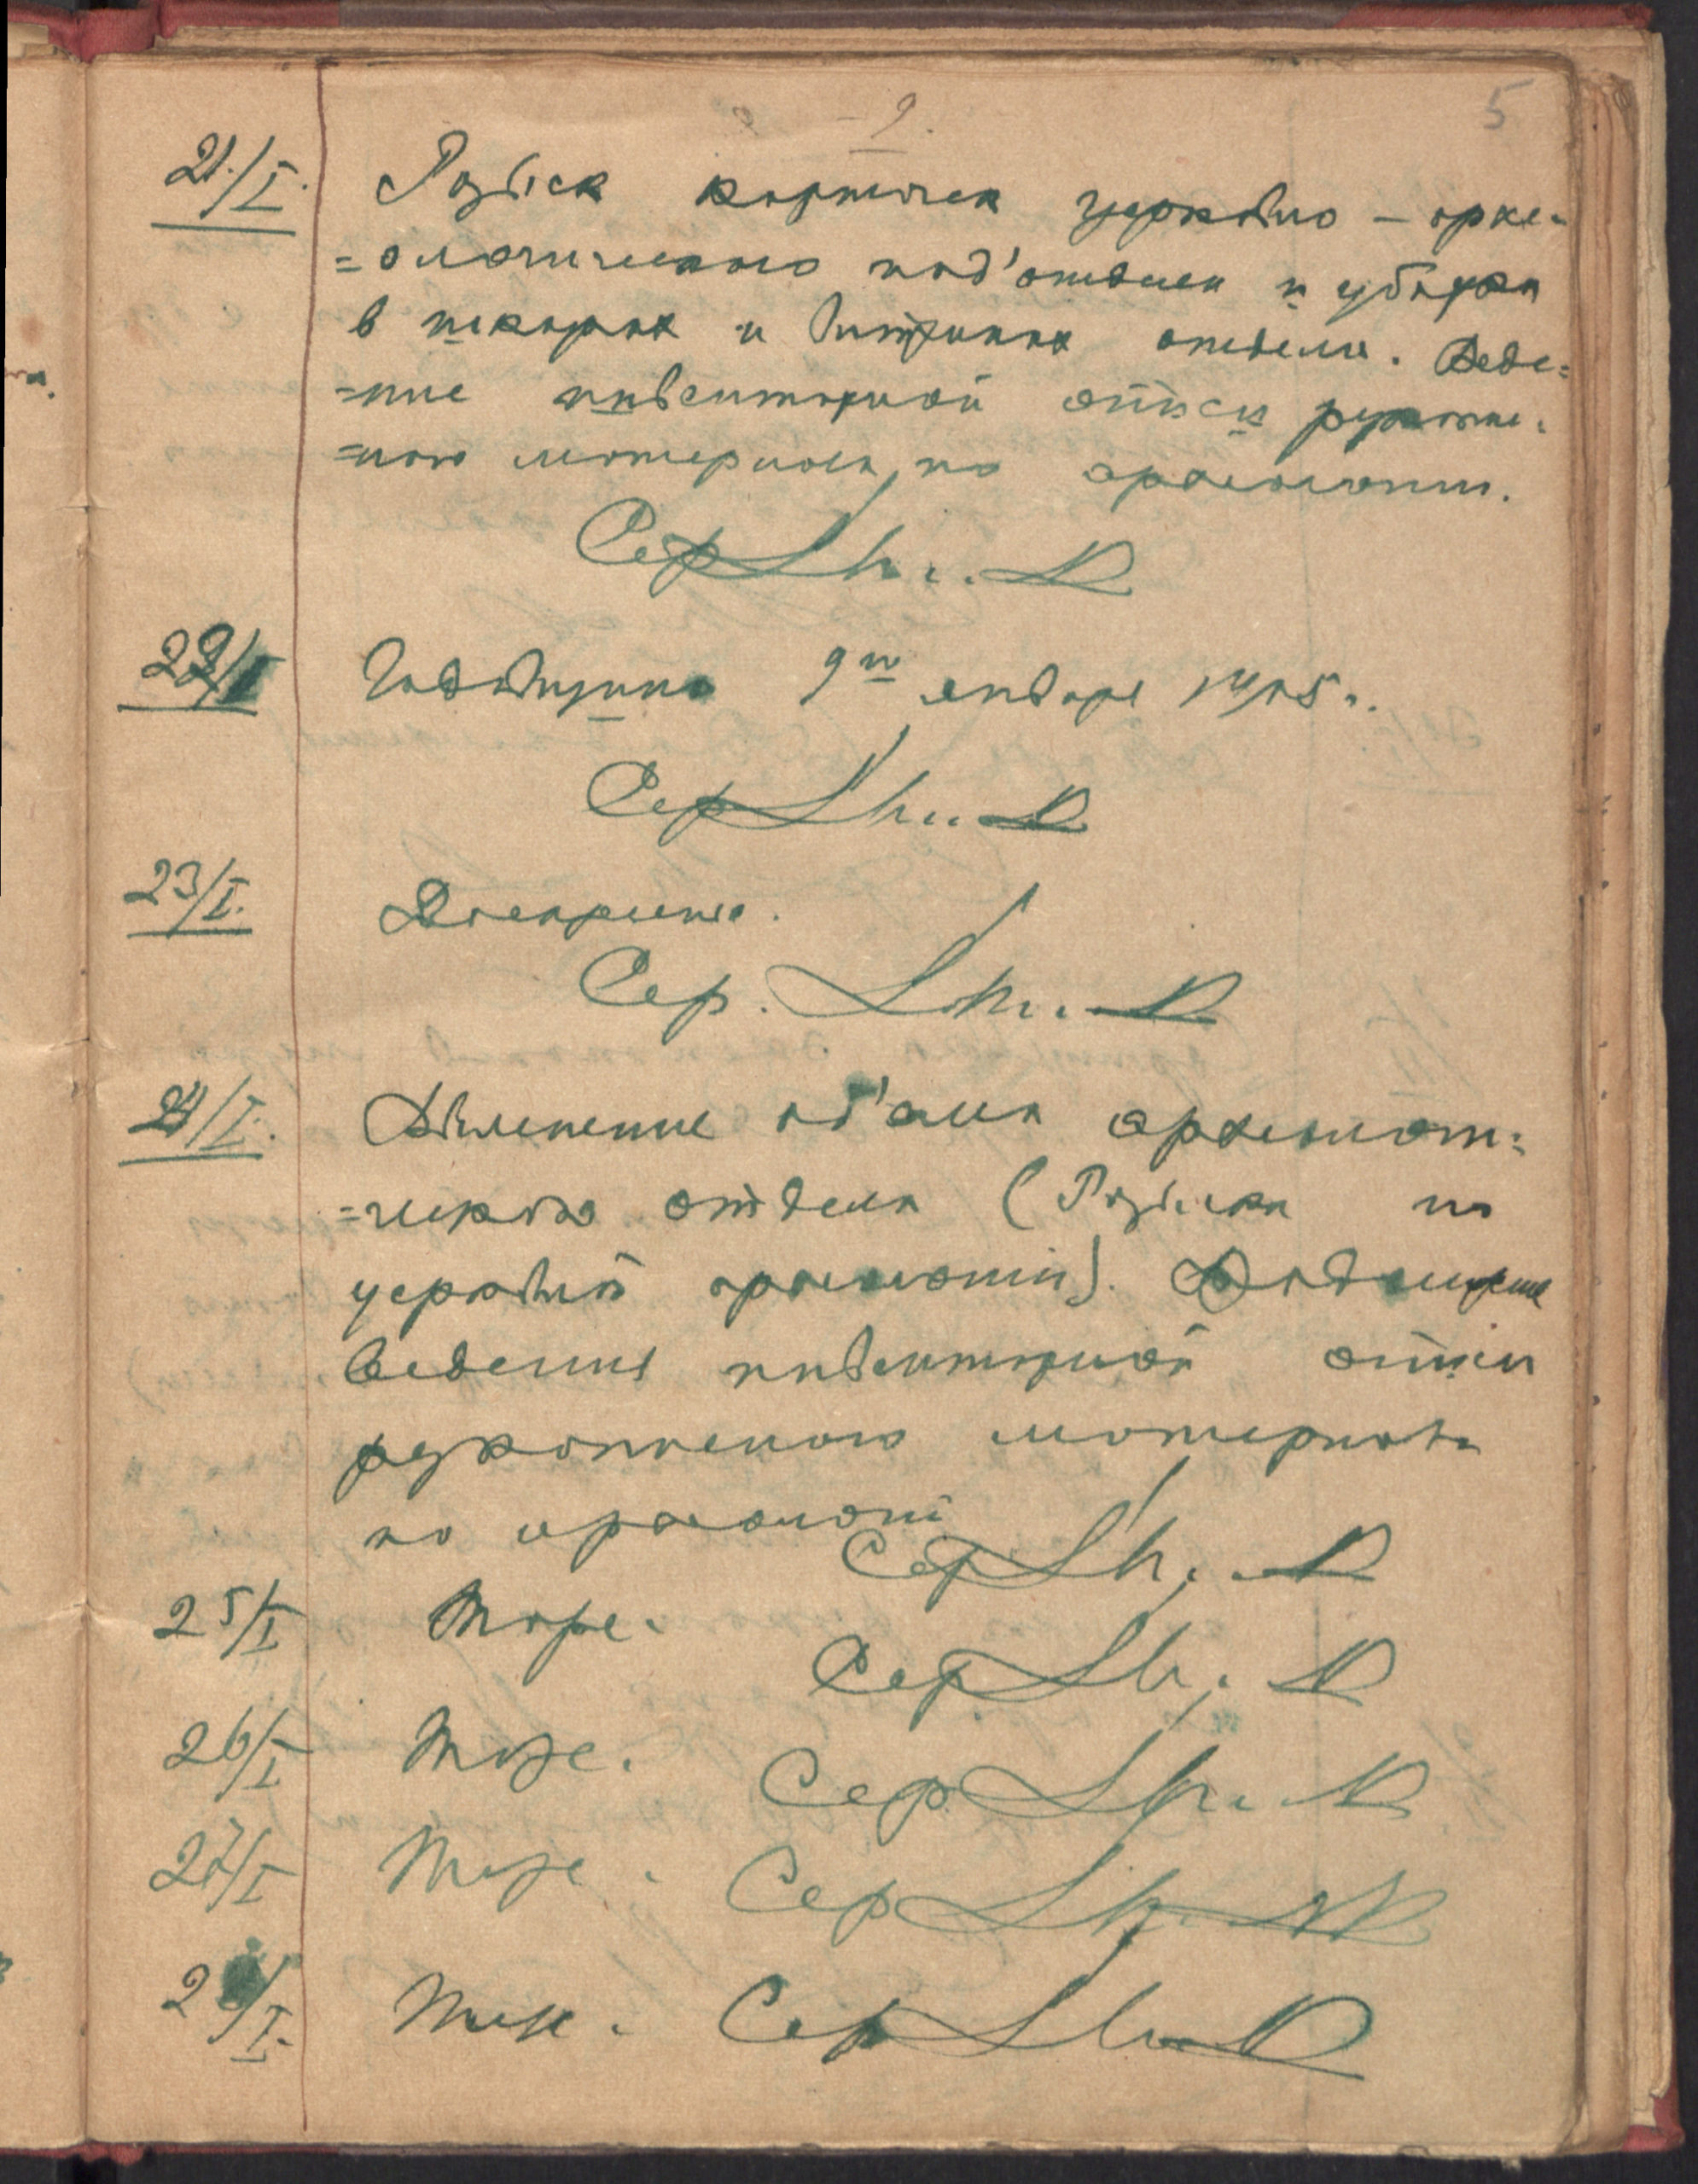 5
9.
21./I.
Розыск карточек церковно – архе-
=ологического под'отдела и уборка
в шкафах и витринах отдела. Веде=
=ние инвентарной описи рукопис-
=ного материала по археологии.
Сер
22/I
Годовщина 9го января 1905 г.
Сер
23/I.
Воскресенье.
Сер.
24/I.
об'ема археологи=
=ческого отдела (Розыски по
церковной археологии).
ведения инвентарной описи
материала
по археологии
Сер
25/I
Тоже.
Сер
26/I
Тоже.
Сер
27/I
Тоже.
Сер
2 /I.
Тоже.
Сер